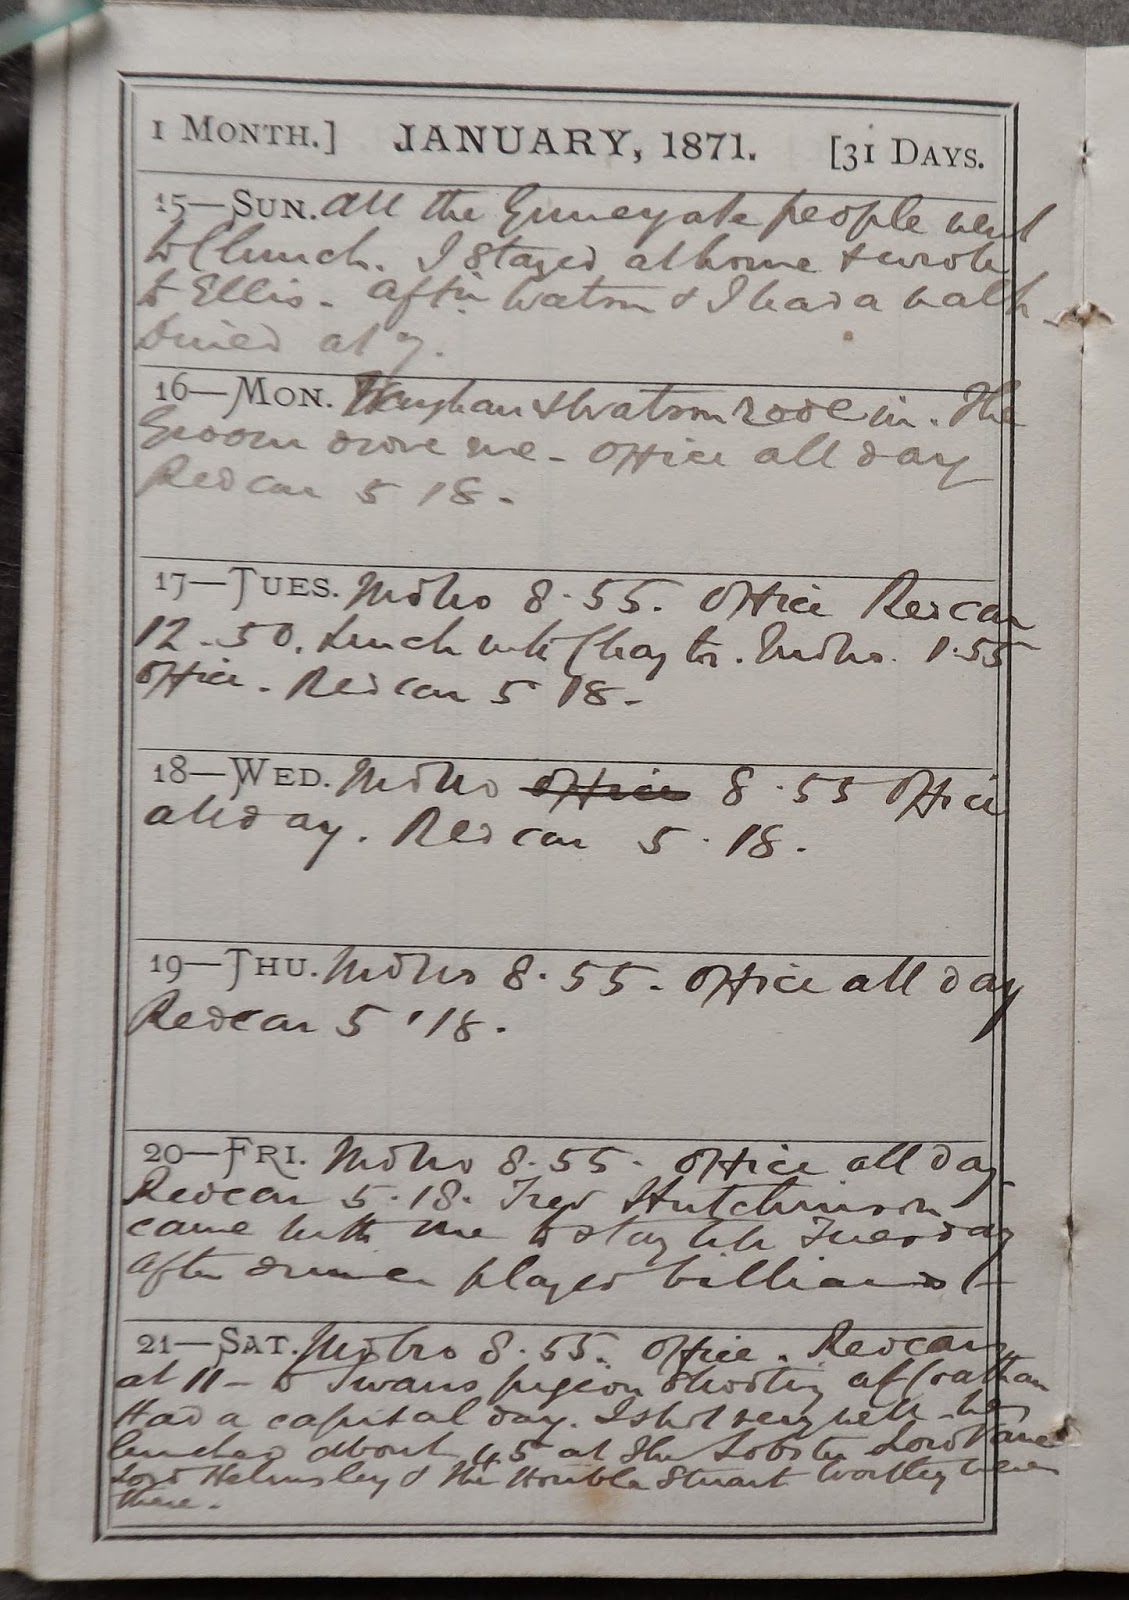 1 MONTH.] JANUARY, 1871. [31 DAYS.
15—SUN. all the people went
to Church. I stayed at home & wrote
to Ellis. After Watson & I had a walk
Dined at 7.
16—MON. Vaughan & Watson rode in. The
Groom drove me - Office all day
Redcar 5 18.
17—TUES. Mdbro 8.55. Office Redcar
12.50. Lunch with Chaytor. Mdbro. 1.55
Office. Redcar 5 18.
18—WED. Mdbro Office 8.55 Office
all day. Redcar 5.18.
19—THU. Mdbro 8.55. Office all day
Redcar 5.18.
20—FRI. Mdbro 8.55. Office all day
Redcar 5.18. Fred Hutchinson
came with me to stay till Tuesday
After dinner played billiards -
21—SAT. Mdbro 8.55. Office. Redcar
at 11 - to Swans pigeon shooting at Coatham
Had a capital day. I shot very well.
lunched about 45 at the Lobster Lord Vane
Lord Helmsley & the Honble Stuart Wortley were
there.